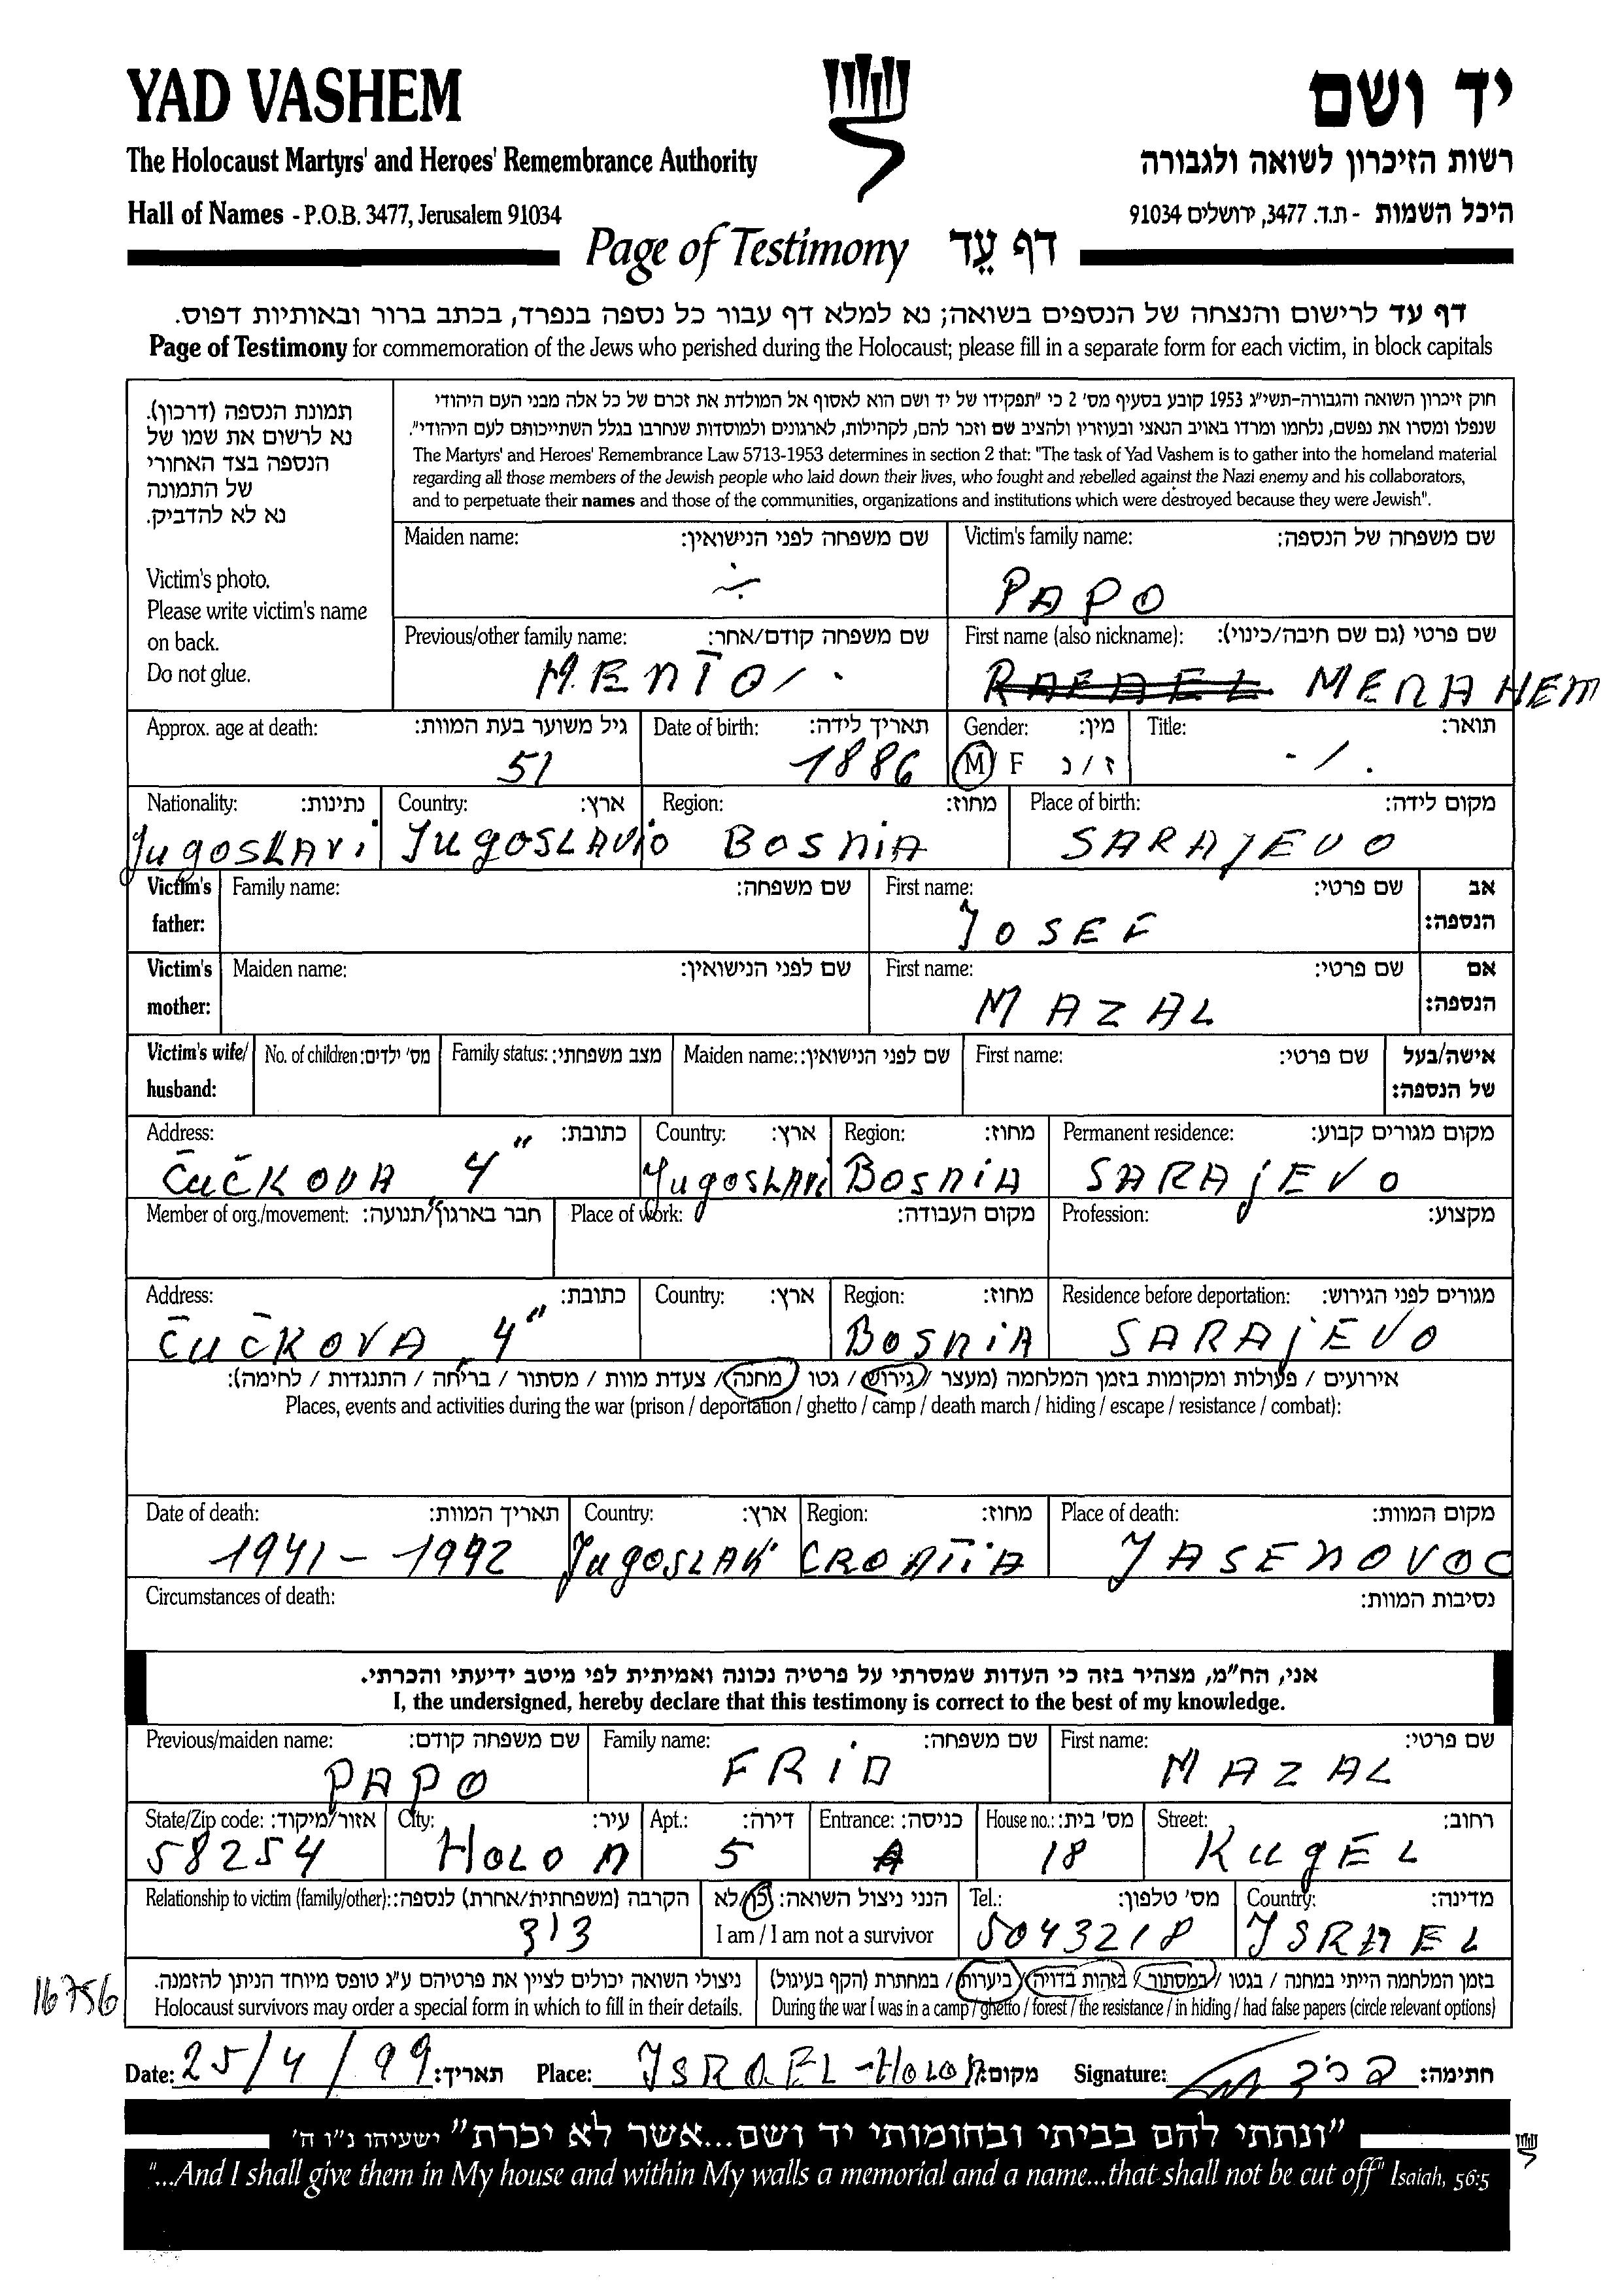 YAD VASHEM
יד ושם
The Holocaust Martyrs' and Heroes' Remembrance Authority
רשות הזיכרון לשואה ולגבורה
Hall of Names - P.O.B. 3477, Jerusalem 91034
היכל השמות - ת.ד. 3477, ירושלים 91034
Page of Testimony דף עֵד
דף עד לרישום והנצחה של הנספים בשואה; נא למלא דף עבור כל נספה בנפרד, בכתב ברור ובאותיות דפוס.
Page of Testimony for commemoration of the Jews who perished during the Holocaust; please fill in a separate form for each victim, in block capitals
תמונת הנספה (דרכון).
נא לרשום את שמו של
הנספה בצד האחורי
של התמונה
נא לא להדביק.
Victim's photo.
Please write victim's name
on back.
Do not glue.
חוק זיכרון השואה והגבורה-תשי"ג 1953 קובע בסעיף מס' 2 כי "תפקידו של יד ושם הוא לאסוף אל המולדת את זכרם של כל אלה מבני העם היהודי
שנפלו ומסרו את נפשם, נלחמו ומרדו באויב הנאצי ובעוזריו ולהציב שם וזכר להם, לקהילות, לארגונים ולמוסדות שנחרבו בגלל השתייכותם לעם היהודי".
The Martyrs' and Heroes' Remembrance Law 5713-1953 determines in section 2 that: "The task of Yad Vashem is to gather into the homeland material
regarding all those members of the Jewish people who laid down their lives, who fought and rebelled against the Nazi enemy and his collaborators,
and to perpetuate their names and those of the communities, organizations and institutions which were destroyed because they were Jewish".
Maiden name: שם משפחה לפני הנישואין: Victim's family name: שם משפחה של הנספה:
PAPO
Previous/other family name: שם משפחה קודם/אחר: First name (also nickname): שם פרטי (גם שם חיבה/כינוי):
MENTO RAFAEL MENAHEM
Approx. age at death: גיל משוער בעת המוות: Date of birth: תאריך לידה: Gender: מין: Title: תואר:
51 1886 M F ז / נ - / .
Nationality: נתינות: Country: ארץ: Region: מחוז: Place of birth: מקום לידה:
JugoSLAVi JugoSLAVio BOSNiA SARAJEVO
Victim's father: Family name: שם משפחה: First name: שם פרטי: אב הנספה:
JOSEF
Victim's mother: Maiden name: שם לפני הנישואין: First name: שם פרטי: אם הנספה:
MAZAL
Victim's wife/ husband: No. of children: מס' ילדים: Family status: מצב משפחתי: Maiden name: שם לפני הנישואין: First name: שם פרטי: אישה/בעל של הנספה:
Address: כתובת: Country: ארץ: Region: מחוז: Permanent residence: מקום מגורים קבוע:
ČuČKOVA 4" JugoSLAVi BOSNiA SARAjEVO
Member of org./movement: חבר בארגון/תנועה: Place of work: מקום העבודה: Profession: מקצוע:
Address: כתובת: Country: ארץ: Region: מחוז: Residence before deportation: מגורים לפני הגירוש:
ČuČKOVA 4" BOSNiA SARAjEVO
אירועים / פעולות ומקומות בזמן המלחמה (מעצר / גירוש / גטו / מחנה / צעדת מוות / מסתור / בריחה / התנגדות / לחימה):
Places, events and activities during the war (prison / deportation / ghetto / camp / death march / hiding / escape / resistance / combat):
Date of death: תאריך המוות: Country: ארץ: Region: מחוז: Place of death: מקום המוות:
1941 - 1942 JugoSLAV CROATiA JASENOVOC
Circumstances of death: נסיבות המוות:
אני, הח"מ, מצהיר בזה כי העדות שמסרתי על פרטיה נכונה ואמיתית לפי מיטב ידיעתי והכרתי.
I, the undersigned, hereby declare that this testimony is correct to the best of my knowledge.
Previous/maiden name: שם משפחה קודם: Family name: שם משפחה: First name: שם פרטי:
PAPO FRiD MAZAL
State/Zip code: אזור/מיקוד: City: עיר: Apt.: דירה: Entrance: כניסה: House no.: מס' בית: Street: רחוב:
58254 HOLON 5 A 18 KugEL
Relationship to victim (family/other): הקרבה (משפחתית/אחרת) לנספה: הנני ניצול השואה: כן/לא Tel.: מס' טלפון: Country: מדינה:
I am / I am not a survivor 5043218 JSRAEL
ניצולי השואה יכולים לציין את פרטיהם ע"ג טופס מיוחד הניתן להזמנה. בזמן המלחמה הייתי במחנה / בגטו / במסתור / בזהות בדויה / ביערות / במחתרת (הקף בעיגול)
16756 Holocaust survivors may order a special form in which to fill in their details. During the war I was in a camp / ghetto / forest / the resistance / in hiding / had false papers (circle relevant options)
Date: 25/4/99 תאריך: Place: JSRAEL-HOLON מקום: Signature: חתימה:
"ונתתי להם בביתי ובחומותי יד ושם...אשר לא יכרת" ישעיהו נ"ו ה'
"...And I shall give them in My house and within My walls a memorial and a name...that shall not be cut off" Isaiah, 56:5